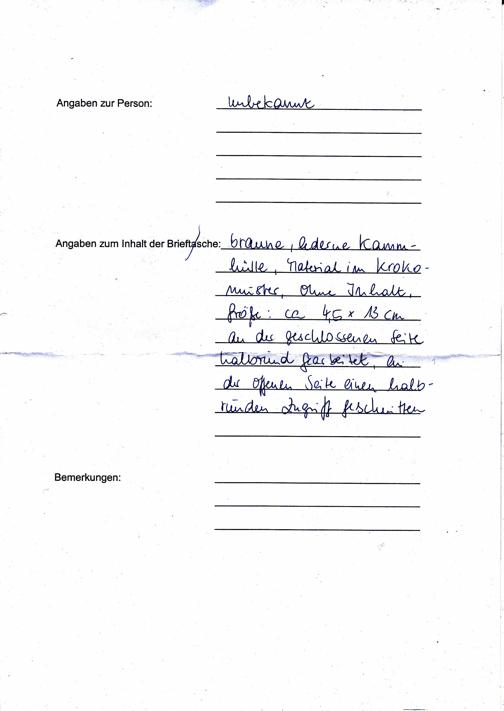 Angaben zur Person: unbekannt
Angaben zum Inhalt der Brieftasche: braune, lederne Kamm-
hülle, Material im Kroko-
muster, ohne Inhalt,
Größe: ca 4,5 x 13 cm
an der geschlossenen Seite
halbrund gearbeitet, an
der offenen Seite einen halb-
runden Zugriff geschnitten
Bemerkungen: